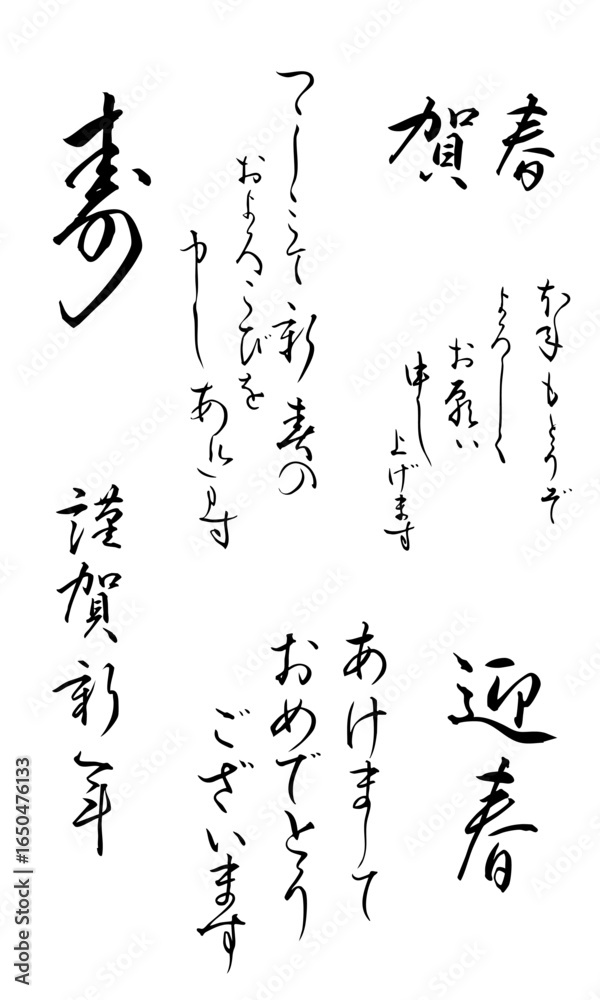 賀春
本年もどうぞ
よろしく
お願い
申し上げます
つつしみて新春の
およろこびを
申しあげます
寿
謹賀新年
迎春
あけまして
おめでとう
ございます
Adobe Stock | #1650476133